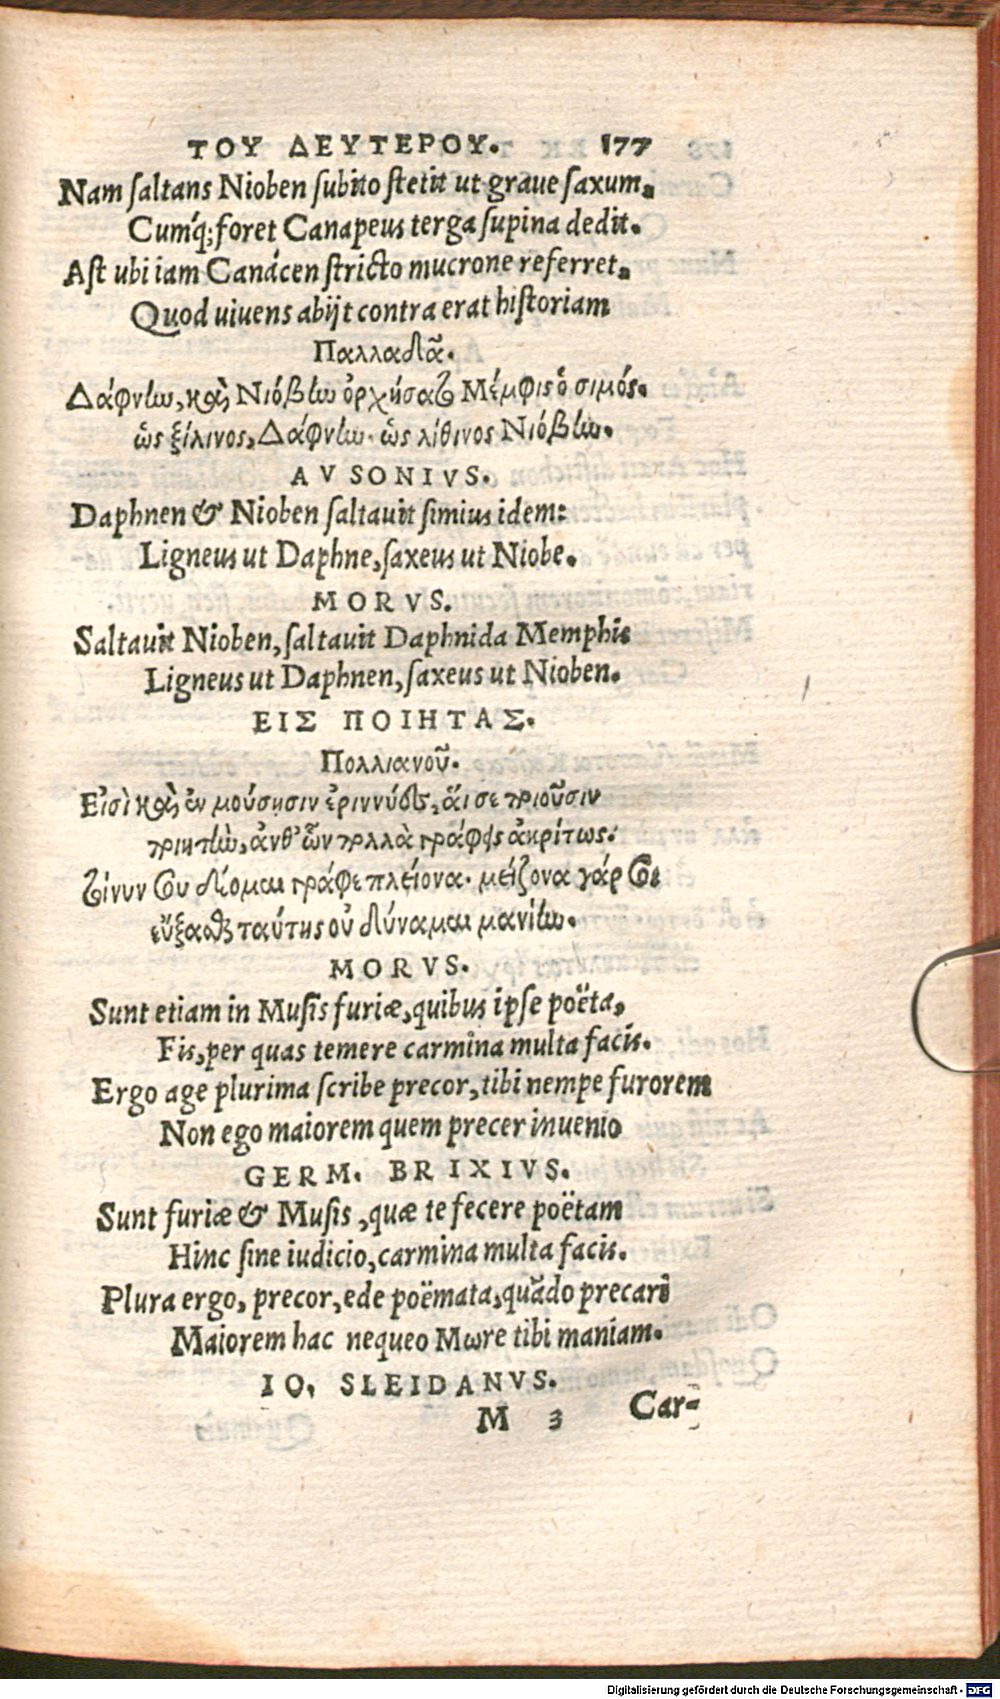 ΤΟΥ ΔΕΥΤΕΡΟΥ. 177
Nam ſaltans Nioben ſubito ſtetit ut graue ſaxum.
Cumq́; foret Canapeus terga ſupina dedit.
Aſt ubi iam Canácen ſtricto mucrone referret.
Quod uiuens abijt contra erat hiſtoriam
Παλλαδᾶ.
Δάφνlω, καὶ Νιόβlω ὀρχήσαto Μέμφις ὁ σιμός.
ὡς ξύλινος, Δάφνlω. ὡς λίθινος Νιόβlω.
AVSONIVS.
Daphnen & Nioben ſaltauit ſimius idem:
Ligneus ut Daphne, ſaxeus ut Niobe.
MORVS.
Saltauit Nioben, ſaltauit Daphnida Memphis
Ligneus ut Daphnen, ſaxeus ut Nioben.
ΕΙΣ ΠΟΙΗΤΑΣ.
Πολλιανοῦ.
Εἰσὶ καὶ ἐν μούσησιν ἐριννύες, ἅι σε ποιοῦσιν
ποιητlὼ, ἀνθ' ὧν πολλὰ γράφεις ἀκρίτως.
τοίνυν σου δέομαι γράφε πλείονα. μείζονα γάρ σοι
εὔξασθαι ταύτης οὐ δύναμαι μανίlω.
MORVS.
Sunt etiam in Muſis furiæ, quibus ipſe poëta,
Fis, per quas temere carmina multa facis.
Ergo age plurima ſcribe precor, tibi nempe furorem
Non ego maiorem quem precer inuenio
GERM. BRIXIVS.
Sunt furiæ & Muſis, quæ te fecere poëtam
Hinc ſine iudicio, carmina multa facis.
Plura ergo, precor, ede poëmata, quãdo precari
Maiorem hac nequeo Mωre tibi maniam.
IO. SLEIDANVS.
M 3 Car-
Digitalisierung gefördert durch die Deutsche Forschungsgemeinschaft - DFG